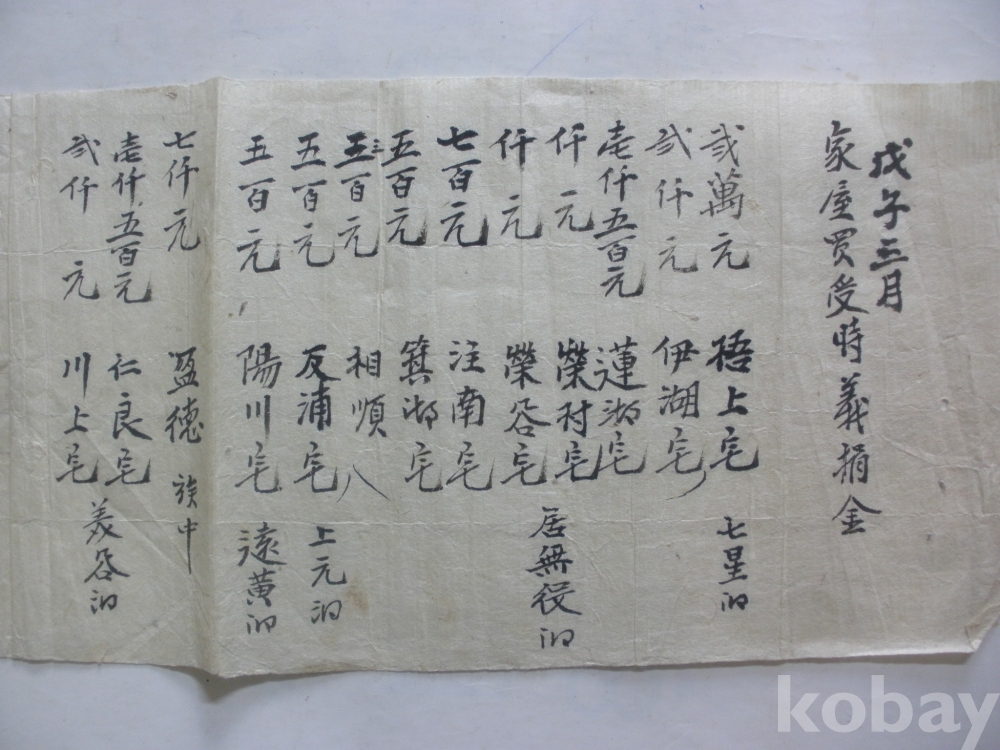 戊午三月
家屋買受時義捐金
弐萬元 梧上宅 七星洞
弐仟元 伊湖宅
壱仟五百元 蓮湖宅
仟元 榮村宅 居無役洞
仟元 榮谷宅
七百元 注南宅
五百元 箕湖宅
五三百元 相順
五百元 反浦宅 上元洞
五百元 陽川宅 遠黄洞
七仟元 盈德 族中
壱仟五百元 仁良宅
弐仟元 川上宅 美谷洞
kobay